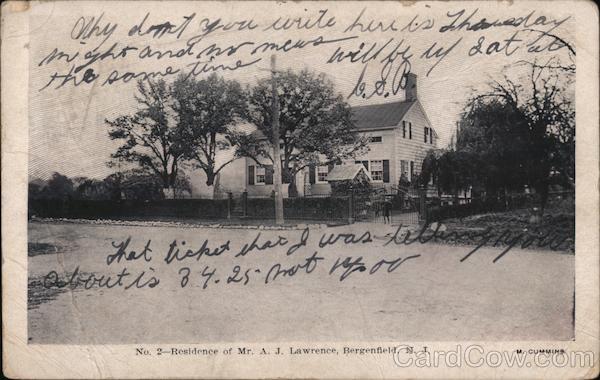 Why don't you write here is Thursday
night and no news will be up Sat at
the same time
E.S.B.
That ticket that I was telling you
about is 34.25 not you
No. 2—Residence of Mr. A. J. Lawrence, Bergenfield, N. J.
M. CUMMING
CardCow.com